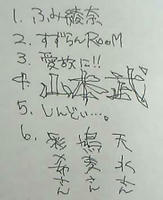 1. ふみ綾奈
2. すずらんRooM
3. 愛故に!!
4. 山本武
5. しんどい…。
6. 彩 鳩 天
さん さん さん